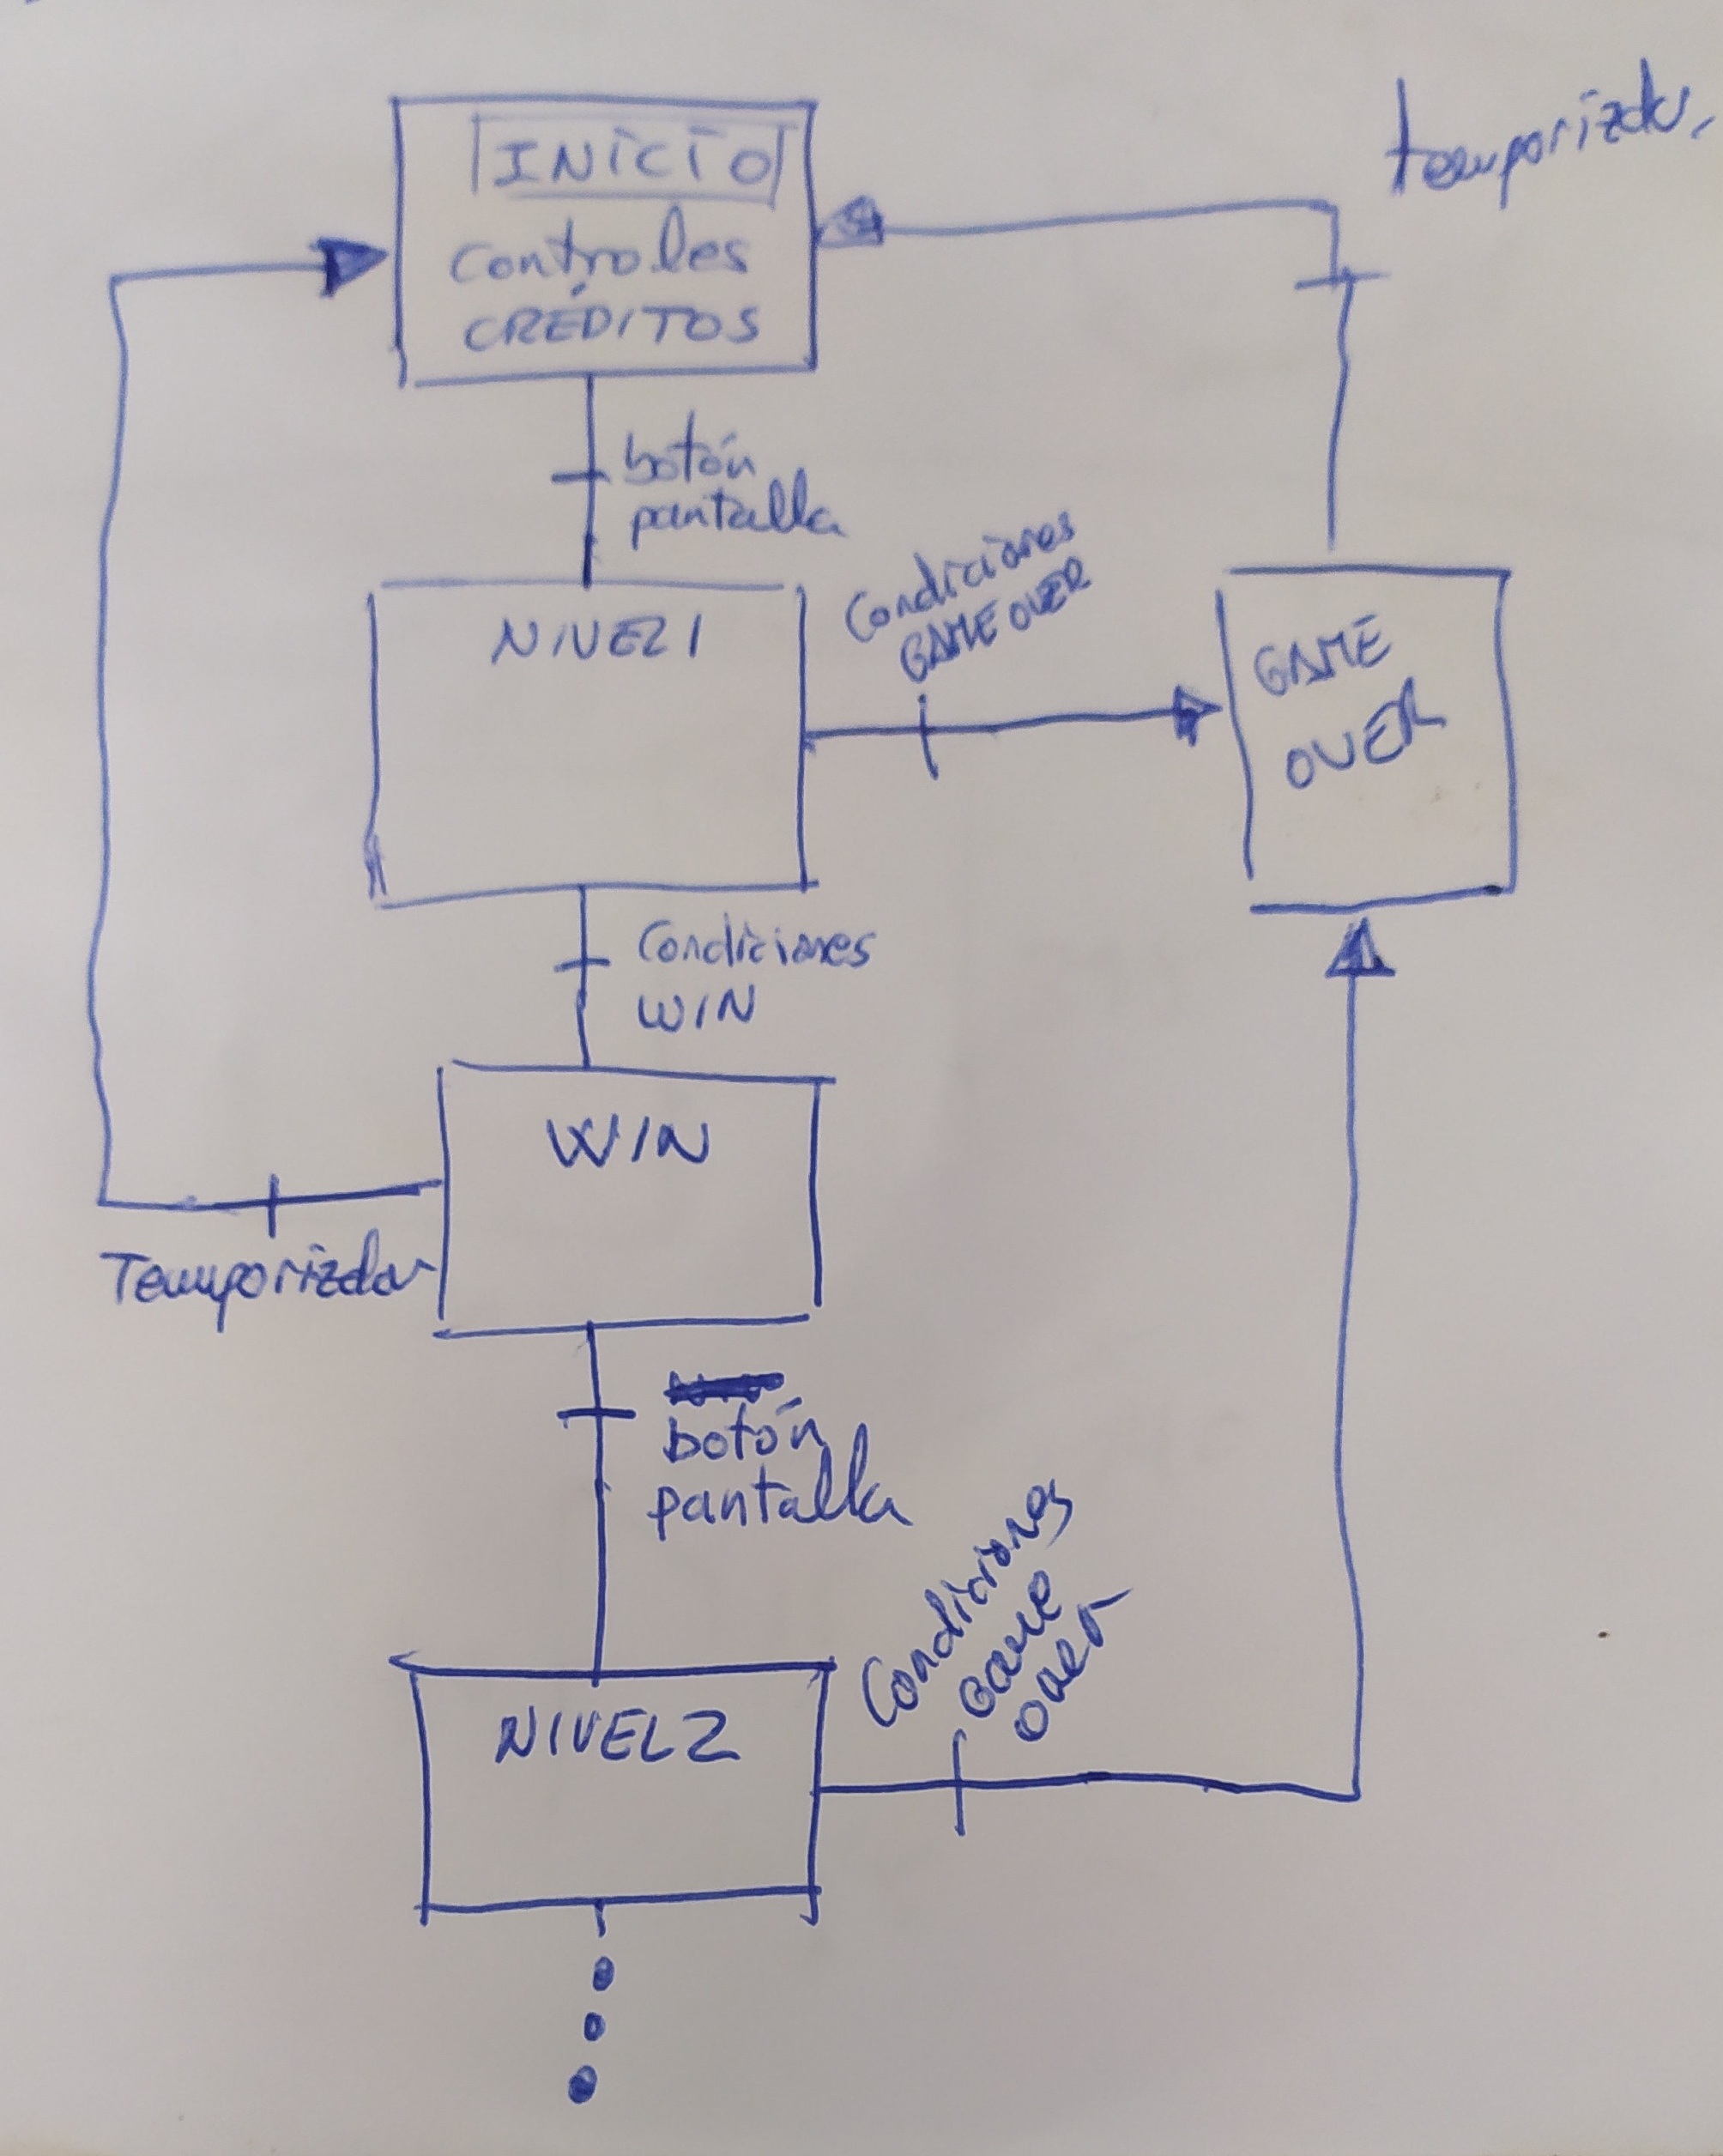 INICIO
Controles
CRÉDITOS
temporizdor
botón
pantalla
Condiciones
GAME OVER
NIVEL 1
GAME
OVER
Condiciones
WIN
WIN
Temporizador
botón
pantalla
Condiciones
Game
Over
NIVEL 2